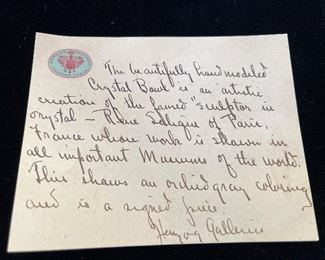 The beautifully hand modeled
Crystal Bowl is an artistic
creation of the famed "sculptor in
crystal – Rene Lalique of Paris,
France whose work is shown in
all important Museums of the world.
This shows an orchid gray coloring
and is a signed piece.
Herzog Galleries